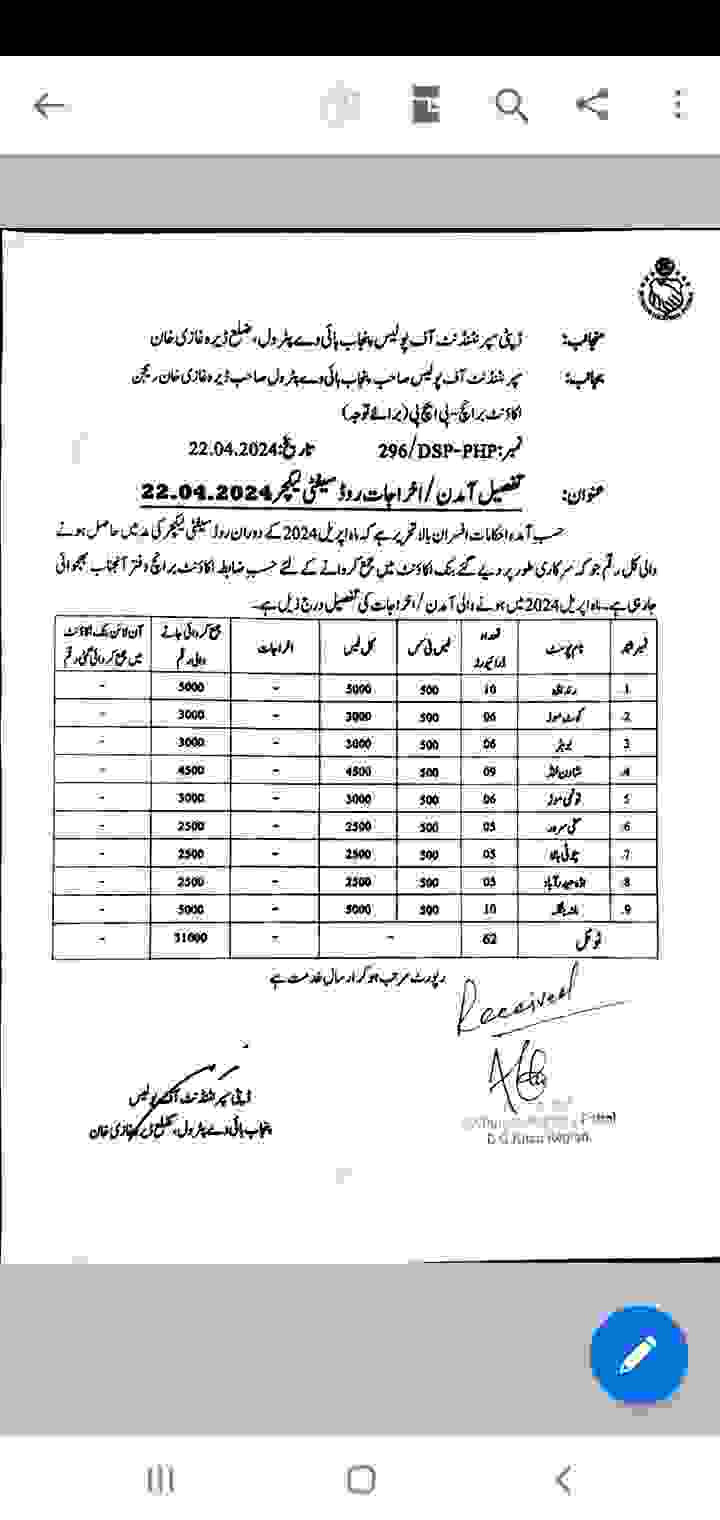 منجانب: ڈپٹی سپرنٹنڈنٹ آف پولیس پنجاب ہائی وے پٹرول، ضلع ڈیرہ غازی خان
بجانب: سپرنٹنڈنٹ آف پولیس صاحب پنجاب ہائی وے پٹرول صاحب ڈیرہ غازی خان ریجن
اکاؤنٹ برانچ-پی ایچ پی (برائے توجہ)
نمبر:296/DSP-PHP تاریخ:22.04.2024
عنوان: تفصیل آمدن / اخراجات روڈ سیفٹی لیکچر 22.04.2024
حسب آمدہ احکامات افسران بالا تحریر ہے کہ ماہ اپریل 2024 کے دوران روڈ سیفٹی لیکچر کی مد میں حاصل ہونے
والی کل رقم جو کہ سرکاری طور پر دیے گئے بنک اکاؤنٹ میں جمع کروانے کے لئے حسب ضابطہ اکاؤنٹ برانچ دفتر آنجناب بھجوائی
جاری ہے۔ ماہ اپریل 2024 میں ہونے والی آمدن / اخراجات کی تفصیل درج ذیل ہے۔
نمبر شمار نام پوسٹ تعداد ڈرائیورز فیس فی کس کل فیس اخراجات جمع کروائی جانے والی رقم آن لائن بنک اکاؤنٹ میں جمع کروائی گئی رقم
1. 10 500 5000 - 5000 -
2. کوٹ موڑ 06 500 3000 - 3000 -
3 06 500 3000 - 3000 -
4. شادن لنڈ 09 500 4500 - 4500 -
5 موڑ 06 500 3000 - 3000 -
6. سخی سرور 05 500 2500 - 2500 -
7. چوٹی بالا 05 500 2500 - 2500 -
8 اڈہ حیدرآباد 05 500 2500 - 2500 -
9. 10 500 5000 - 5000 -
ٹوٹل 62 - - 31000 -
رپورٹ مرتب ہو کر ارسال خدمت ہے
Received
ڈپٹی سپرنٹنڈنٹ آف پولیس
پنجاب ہائی وے پٹرول، ضلع ڈیرہ غازی خان
Patrol
D.G.Khan Region